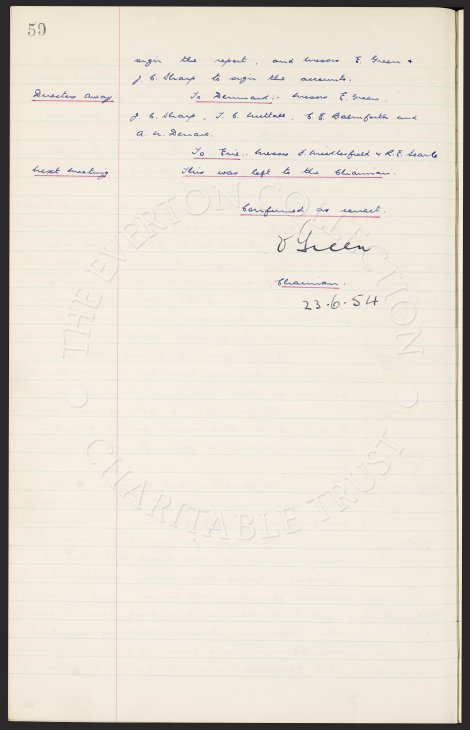 59
sign the report, and Messrs E. Green &
J. C. Sharp to sign the accounts.
Directors away To Denmark:- Messrs E. Green.
J. C. Sharp, T. C. Nuttall, C. E. Balmforth and
A. W. Denaro.
To Eire:- Messrs F. Micklesfield & R. E. Searle
Next Meeting This was left to the Chairman.
Confirmed as correct.
E Green
Chairman.
23.6.54
THE EVERTON COLLECTION
CHARITABLE TRUST